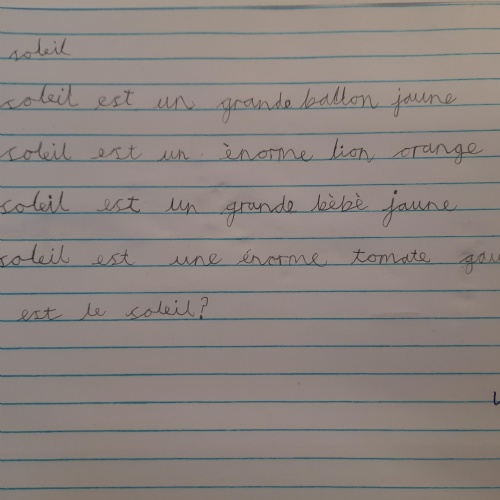 soleil
soleil est un grande ballon jaune
soleil est un ènorme lion orange
soleil est un grande bèbè jaune
soleil est une énorme tomate
est le soleil?